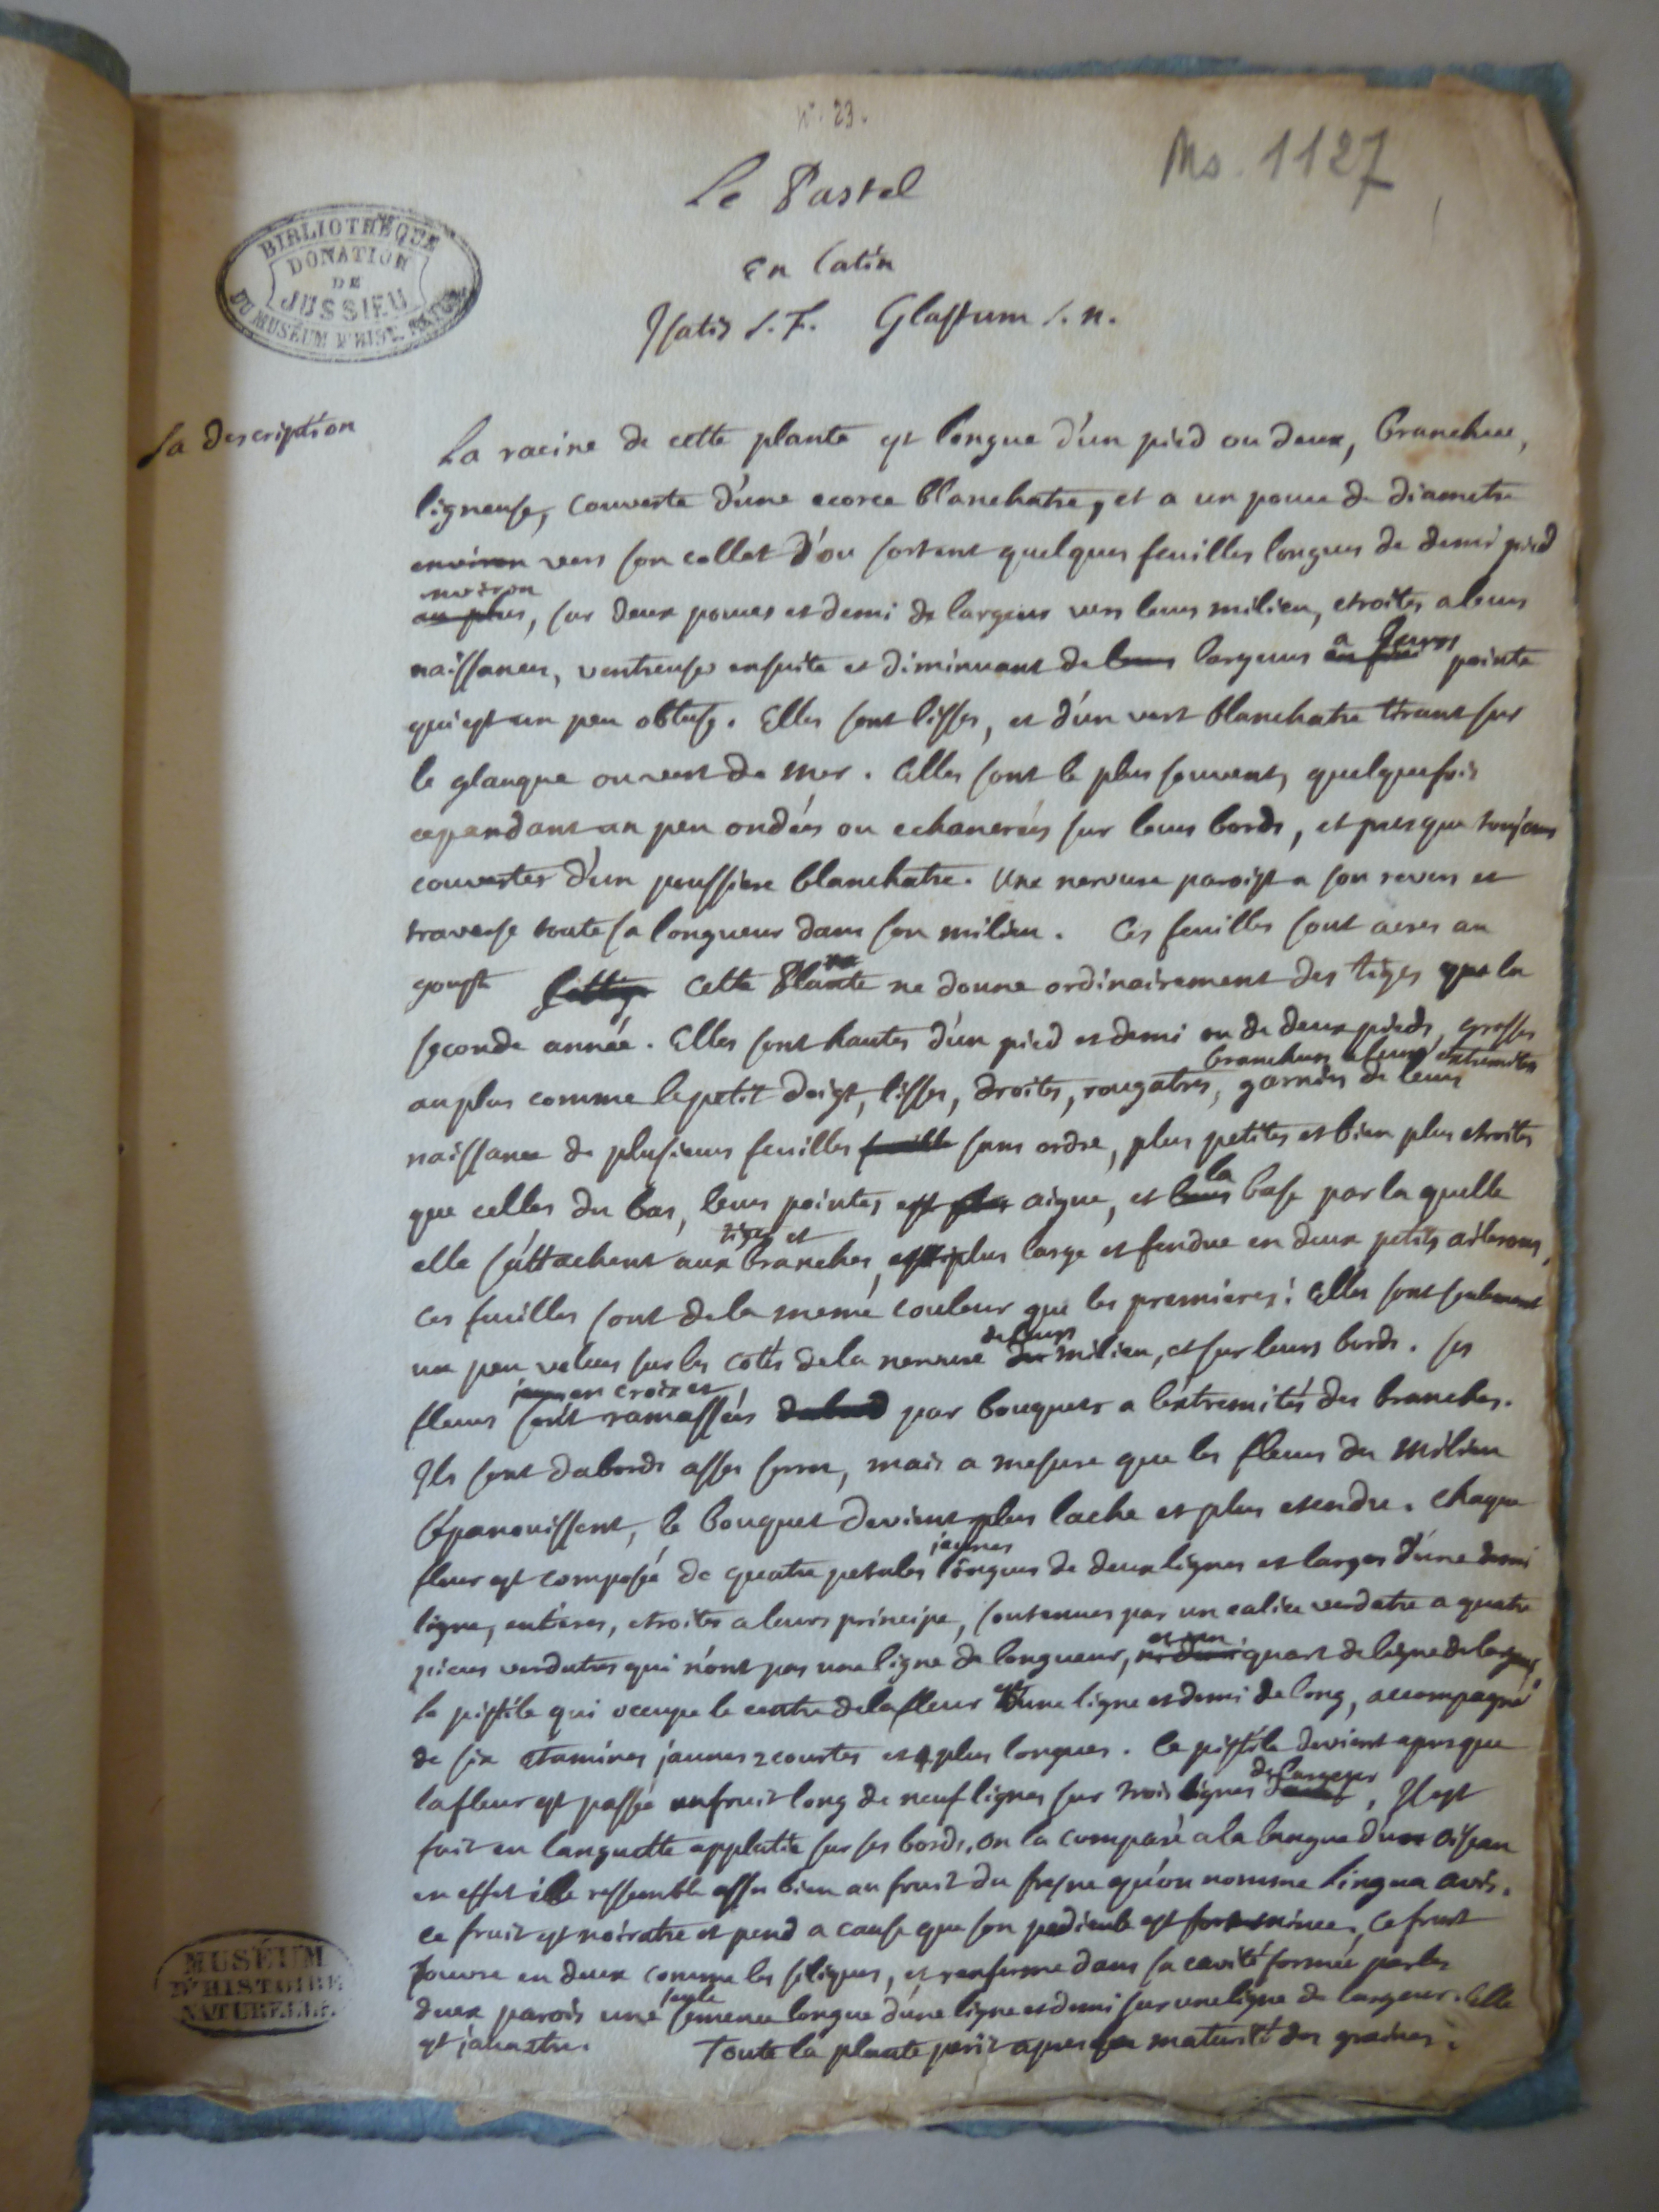 N°. 23.
Ms. 1127
Le Pastel
BIBLIOTHÈQUE
DONATION
DE
JUSSIEU
DU MUSÉUM D'HIST. NATUR.
En Latin
Isatis s. F. Glastum s. n.
La description
La racine de cette plante est longue d'un pied ou deux, branchue,
ligneuse, couverte d'une ecorce blanchatre, et a un pouce de diametre
environ vers son collet d'ou sortent quelques feuilles longues de demi pied
environ
au plus, sur deux pouces et demi de largeur vers leurs milieu, etroites a leurs
naissances, ventreuses ensuite et diminuant de leurs largeurs a leurs pointe
qui est un peu obtuse. Elles sont lisses, et d'un vert blanchatre tirant sur
le glauque ou vert de mer. Elles sont le plus souvent, quelquefois
cependant un peu ondées ou echancrées sur leurs bords, et presque toujours
couvertes d'un poussiere blanchatre. Une nervure paroist a son revers et
traverse toute sa longueur dans son milieu. Ces feuilles sont acres au
goust Cette Plante ne donne ordinairement des tiges que la
seconde année. Elles sont hautes d'un pied et demi ou de deux pieds, grosses
branchues a leurs extremites
au plus comme le petit doigt, lisses, droites, rougatres, garnies de leurs
naissance de plusieurs feuilles feuille sans ordre, plus petites et bien plus etroites
que celles du bas, leurs pointes est plus aigue, et leurs la base par la quelle
tiges et
elle s'attachent aux branches, est plus large et fendue en deux petits ailerons,
ces feuilles sont de la meme couleur que les premieres: Elles sont seulement
un peu velues sur les cotés de la nervure de leurs milieu, et sur leurs bords. Ses
en croix et
fleurs sont ramassées par bouquets a l'extremités des branches.
Ils sont dabords asses serrez, mais a mesure que les fleurs du milieu
s'epanouissent, le bouquet devient plus lache et plus etendu. Chaque
jaunes
fleur est composée de quatre petales longues de deux lignes et larges d'une demi
ligne, entieres, etroites a leurs principe, soutenues par un calice verdatre a quatre
et un
pieces verdatres qui n'ont pas une ligne de longueur, quart de ligne de largeur,
le pistile qui occupe le centre de la fleur est d'une ligne et demi de long, accompagné
de six etamines jaunes 2 courtes et 4 plus longues. Ce pistile devient apres que
de largeur
la fleur est passée un fruit long de neuf lignes sur trois lignes, Il est
fait en languette applatie sur ses bords, on la comparé a la langue d'un oiseau
en effet elle ressemble asses bien au fruit du fresne qu'on nomme lingua avis.
ce fruit est noiratre et pend a cause que son pedicule est fort mince, Ce fruit
s'ouvre en deux comme les siliques, et renferme dans sa cavité formée par les
seule
deux parois une semence longue d'une ligne et demi sur une ligne de largeur. Elle
est jaunatre. Toute la plante perit apres la maturité des graines.
MUSÉUM
D'HISTOIRE
NATURELLE.